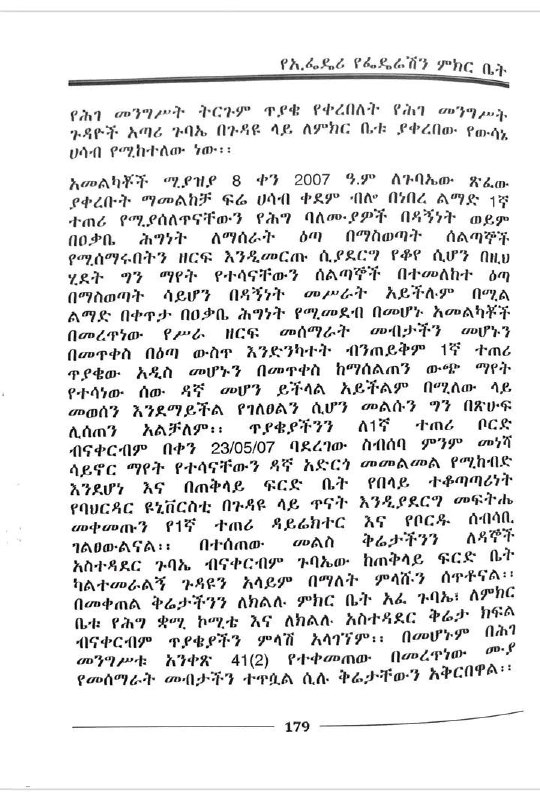 የኢ.ፌዴሪ የፌዴሬሽን ምክር ቤት
የሕገ መንግሥት ትርጉም ጥያቄ የቀረበለት የሕገ መንግሥት
ጉዳዮች አጣሪ ጉባኤ በጉዳዩ ላይ ለምክር ቤቱ ያቀረበው የውሳኔ
ሀሳብ የሚከተለው ነው፡፡
አመልካቾች ሚያዝያ 8 ቀን 2007 ዓ.ም ለጉባኤው ጽፈው
ያቀረቡት ማመልከቻ ፍሬ ሀሳብ ቀደም ብሎ በነበረ ልማድ 1ኛ
ተጠሪ የሚያሰለጥናቸውን የሕግ ባለሙያዎች በዳኝነት ወይም
በዐቃቤ ሕግነት ለማሰራት ዕጣ በማስወጣት ሰልጣኞች
የሚሰማሩበትን ዘርፍ እንዲመርጡ ሲያደርግ የቆየ ሲሆን በዚህ
ሂደት ግን ማየት የተሳናቸውን ሰልጣኞች በተመለከተ ዕጣ
በማስወጣት ሳይሆን በዳኝነት መሥራት አይችሉም በሚል
ልማድ በቀጥታ በዐቃቤ ሕግነት የሚመደብ በመሆኑ አመልካቾች
በመረጥነው የሥራ ዘርፍ መሰማራት መብታችን መሆኑን
በመጥቀስ በዕጣ ውስጥ እንድንካተት ብንጠይቅም 1ኛ ተጠሪ
ጥያቄው አዲስ መሆኑን በመጥቀስ ከማሰልጠን ውጭ ማየት
የተሳነው ሰው ዳኛ መሆን ይችላል አይችልም በሚለው ላይ
መወሰን እንደማይችል የገለፀልን ሲሆን መልሱን ግን በጽሁፍ
ሊሰጠን አልቻለም፡፡ ጥያቄያችንን ለ1ኛ ተጠሪ ቦርድ
ብናቀርብም በቀን 23/05/07 ባደረገው ስብሰባ ምንም መነሻ
ሳይኖር ማየት የተሳናቸውን ዳኛ አድርጎ መመልመል የሚከብድ
እንደሆነ እና በጠቅላይ ፍርድ ቤት የበላይ ተቆጣጣሪነት
የባህርዳር ዩኒቨርስቲ በጉዳዩ ላይ ጥናት እንዲያደርግ መፍትሔ
መቀመጡን የ1ኛ ተጠሪ ዳይሬክተር እና የቦርዱ ሰብሳቢ
ገልፀውልናል፡፡ በተሰጠው መልስ ቅሬታችንን ለዳኞች
አስተዳደር ጉባኤ ብናቀርብም ጉባኤው ከጠቅላይ ፍርድ ቤት
ካልተመራልኝ ጉዳዩን አላይም በማለት ምላሹን ሰጥቶናል፡፡
በመቀጠል ቅሬታችንን ለክልሉ ምክር ቤት አፈ ጉባኤ፣ ለምክር
ቤቱ የሕግ ቋሚ ኮሚቴ እና ለክልሉ አስተዳደር ቅሬታ ክፍል
ብናቀርብም ጥያቄያችን ምላሽ አላገኘም፡፡ በመሆኑም በሕገ
መንግሥቱ አንቀጽ 41(2) የተቀመጠው በመረጥነው ሙያ
የመሰማራት መብታችን ተጥሷል ሲሉ ቅሬታቸውን አቅርበዋል፡፡
179